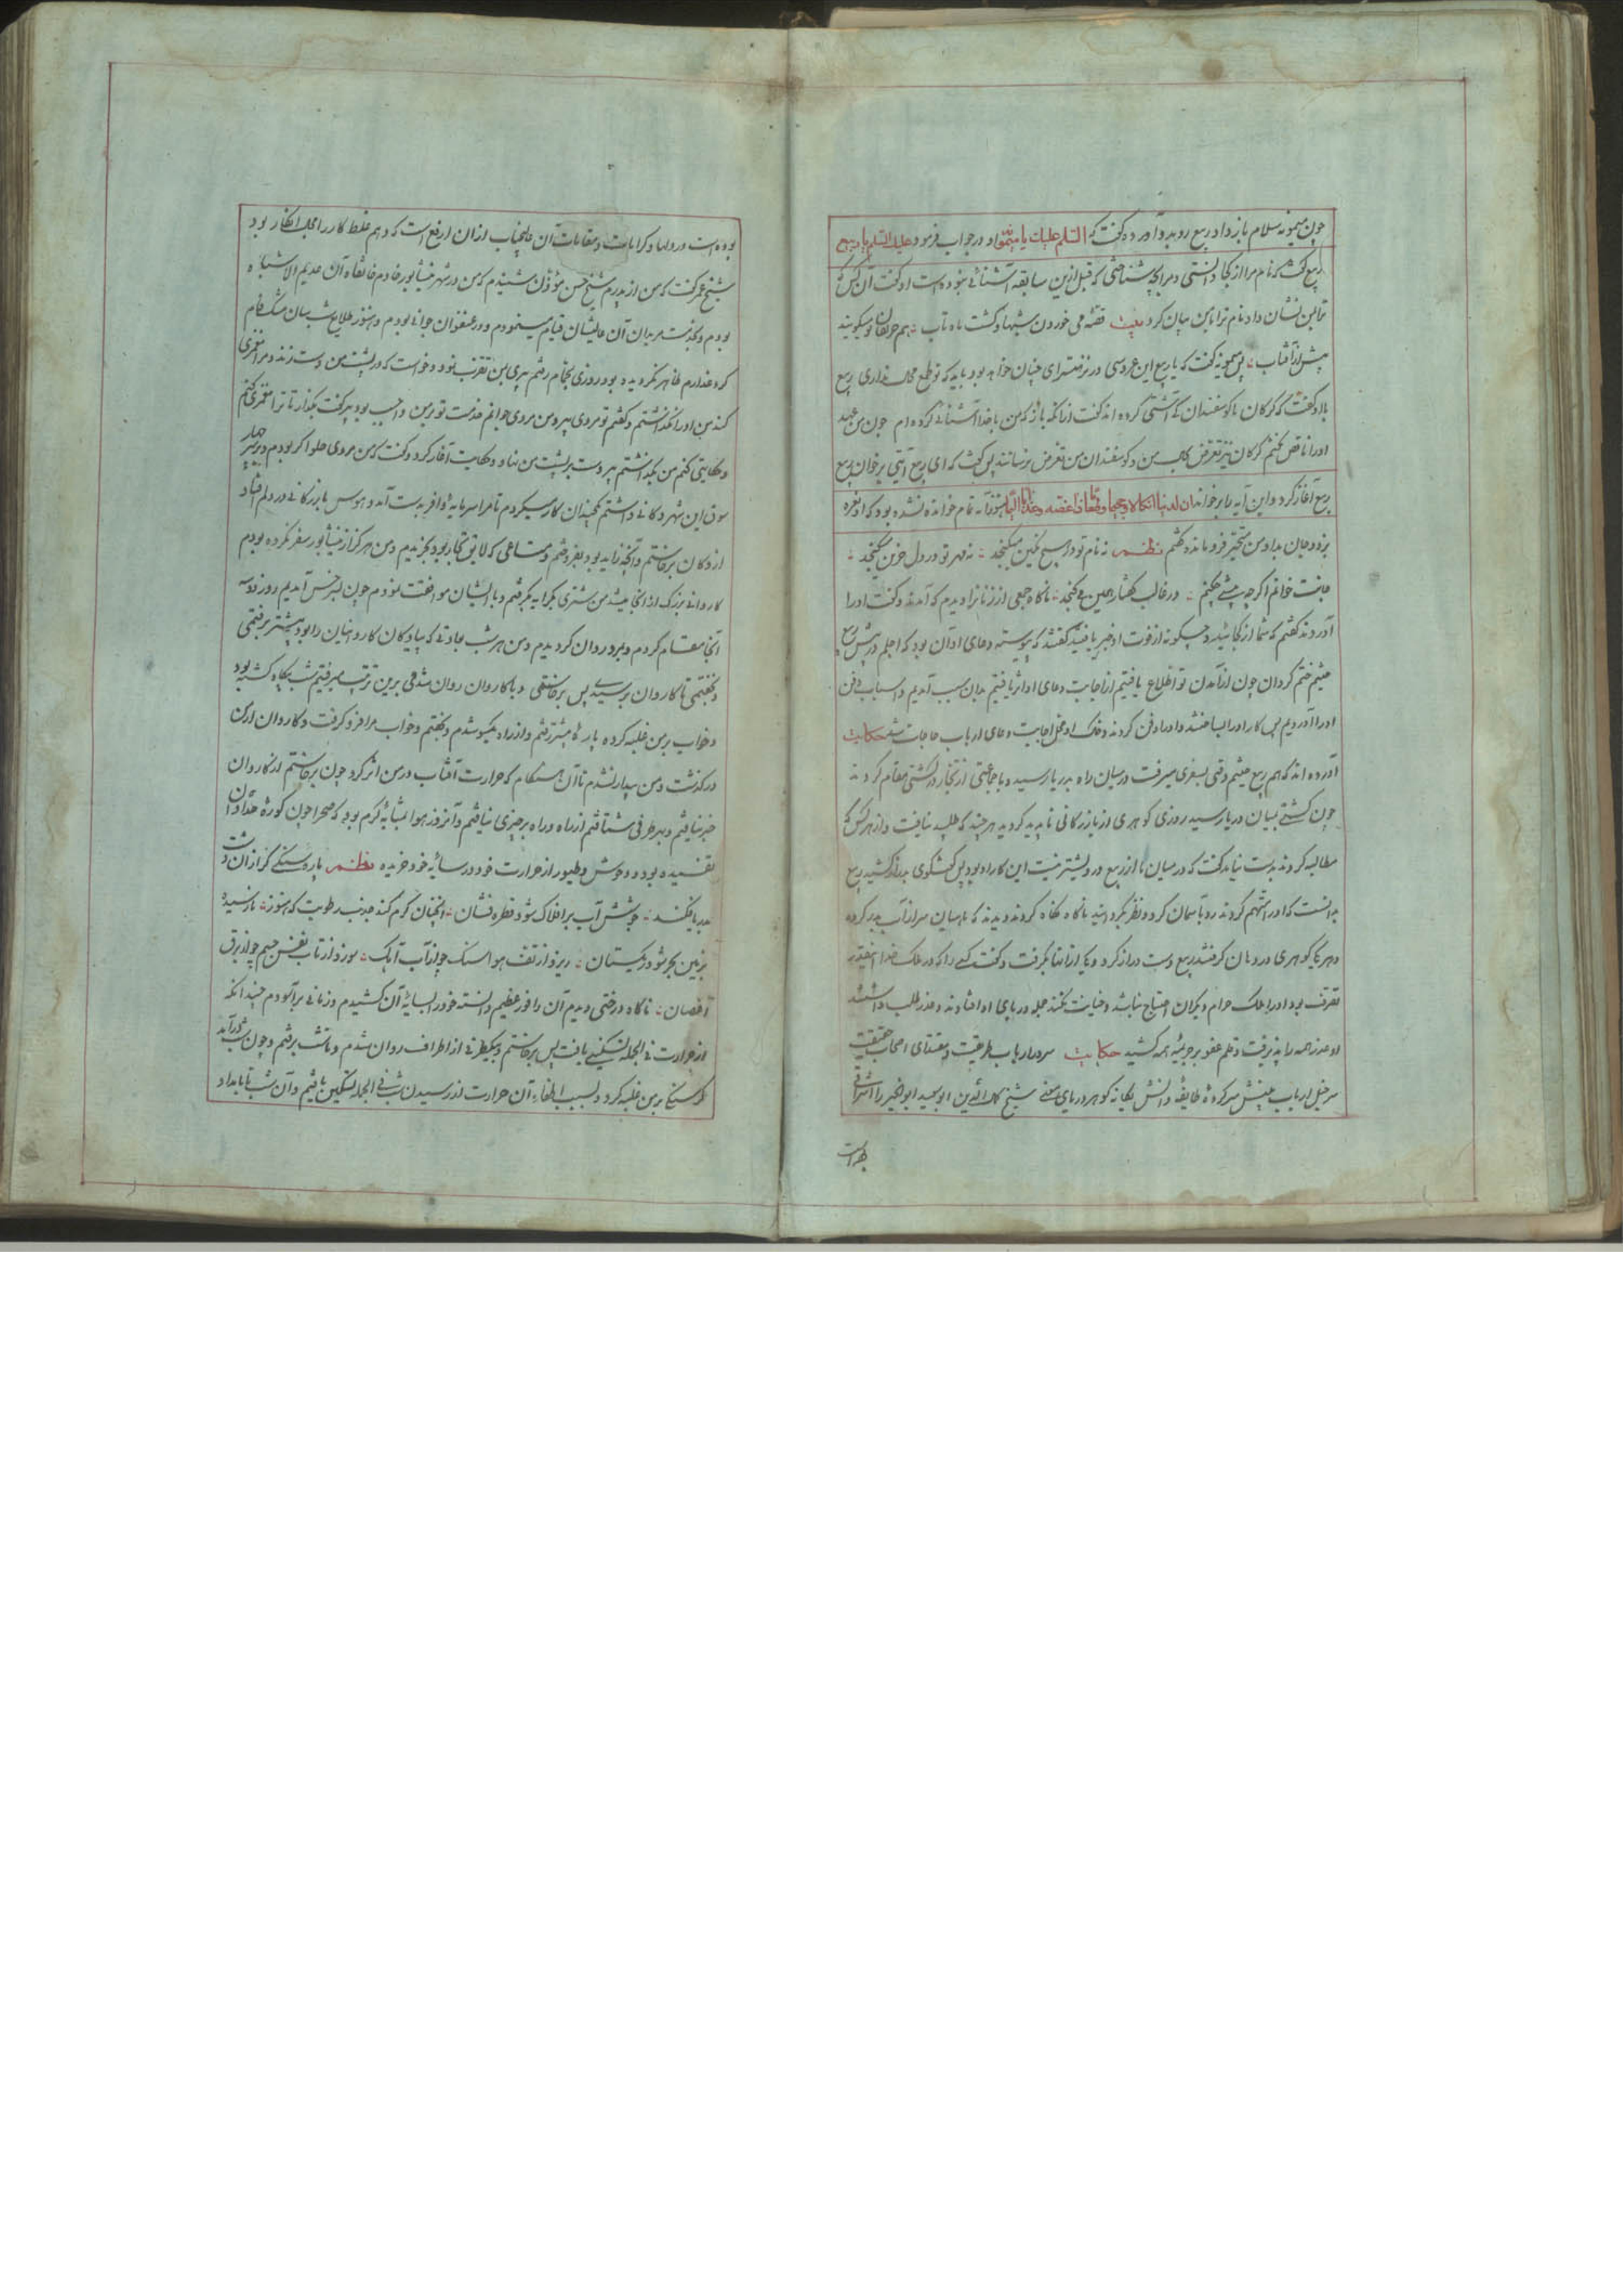 چون میمونه سلام باز داد ربیع رو بدو آورد و گفت که السلم علیک یا میمونه او در جواب فرمود علیک السلم یا ربیع
ربیع گفت که نام مرا از کجا دانستی و مرا بچه شناختی که قبل ازین سابقه آشنائی نبوده است او گفت آن کس که
ترا بمن نشان داد نام ترا بمن بیان کرد بیت قصه می خوردن شبها و گشت ماهتاب هم حریفان تو میگویند
پیش از آفتاب پس میمونه گفت که یا ربیع این عروسی در نزهتسرای جنان خواهد بود باید که توقع محال نداری ربیع
با او گفت که گرگان با گوسفندان کی آشتی کرده اند گفت از آنگه باز که من با خدا آشنائی کرده ام چون من عهد
او را ناقض نگنم گرگان نیز تعرض من و گوسفندان من تعرض نرسانند پس گفت که ای ربیع آیتی برخوان ربیع
ربیع آغاز کرد و این آیه را برخواند ان لدینا انکالا و جحیما و طعاما ذا غصه و عذابا الیما هنوز آیه تمام خوانده نشده بود که او نعره
بزد و جان بداد من متحیر فرو ماندم گفتم نظم نه نام تو در هیچ نگین میگنجد نه مهر تو در دل حزین میگنجد
جانت خوانم اگرچه میشی چکنم در قالب گفتار همین می گنجد ناگاه جمعی از زنانرا دیدم که آمدند و گفت او را
آوردند گفتم که شما از کجائید و چگونه از فوت او خبر یافتید گفتند که پیوسته دعای او آن بود که اجلم در پیش ربیع
خثیم ختم گردان چون از آمدن تو اطلاع یافتیم از اجابت دعای او اثر یافتیم بدان سبب آمدیم و اسباب دفن
او را آوردیم پس کار او را بساختند و او را دفن کردند و خاک او محل اجابت دعای ارباب حاجات شد حکایت
آورده اند که هم ربیع خثیم وقتی بسفری میرفت در میان راه بدریا رسید و با جماعتی از تجار در کشتی مقام کردند
چون کشتی بمیان دریا رسید روزی گوهری از بازرگانی ناپدید گردید هر چند که طلبید نیافت و از هر کس که
مطالبه کردند بدست نیامد گفت که در میان ما از ربیع درویشتر نیست این کار او بود پس گفتگوی دراز کشید ربیع
بدانست که او را متهم کردند رو بآسمان کرد و نظر بگردانید ناگاه نگاه کردند و دیدند که ماهیان سر از آب بدر کرده
و هر یکی گوهری در دهان گرفتند ربیع دست دراز کرد و یکی از آنها بگرفت و گفت کسی را که در ملک خدا اینقدر
تصرف بود او را بملک حرام دیگران احتیاج نباشد و خیانت نکند جمله در پای او افتادند و عذر طلب داشتند
او عذر همه را پذیرفت و قلم عفو بر جریمه همه کشید حکایت سردار ارباب طریقت و مقتدای اصحاب حقیقت
سرخیل ارباب بینش سرکرده طایفه دانش یگانه گوهر دریای معنی شیخ کمال الدین ابو سعید ابو الخیر را اشراقی
بوده است در دلها و کرامات و مقامات آن عالیجناب از آن ارفع است که وهم غلط کار را مجال انکار بود
شیخ عمر گفت که من از پدرم شیخ حسن مؤذن شنیدم که من در شهر نیشابور خادم خانقاه آن عدیم الاشباه
بودم و بخدمت مریدان آن عالیشان قیام مینمودم و در عنفوان جوانی بودم و هنوز طلایع شب سان مشک فام
گرد عذارم ظاهر نگردیده بود روزی بحمام رفتم پیری بمن تقرب نمود و خواست که در پشت من دست زند و مرا مغمزی
کند من او را نگذاشتم و گفتم تو مردی پیر و من مردی جوانم خدمت تو بر من واجب بود پیر گفت بگذار تا ترا مغمزی کنم
و حکایتی کنم من بگذاشتم پیر دست بر پشت من نهاد و حکایت آغاز کرد و گفت که من مردی حلواگر بودم و بر سر چهار
سوق این شهر دکانی داشتم چندان کار میکردم تا مرا سرمایه وافر بدست آمد و هوس بازرگانی در دلم افتاد
از دکان برخاستم و آنچه زاید بود بفروختم و متاعی که لایق تجار بود بخریدم و من هرگز از نیشابور سفر نکرده بودم
کاروانی بزرگ از آنجا میشد من شتری بکرایه گرفتم و با ایشان موافقت نمودم چون بسرخس آمدیم روز دو سه
آنجا مقام کردم و بمرو روان گردیدم و من هر شب بعادتی که پیادگان کاروانیان را بود پیشتر برفتمی
و بخفتمی تا کاروان برسیدی پس برخاستمی و با کاروان روان شدمی برین ترتیب میرفتیم شب بیگاه کشیده بود
و خواب بر من غلبه کرده پاره پیشتر شدم و از راه یکسو شدم و بخفتم و خواب مرا فرو گرفت و کاروان از من
در گذشت و من بیدار نشدم تا آن هنگام که حرارت آفتاب در من اثر کرد چون برخاستم از کاروان
خبر نیافتم و بهر طرفی شتافتم از راه و راه بر چیزی نیافتم و آنروز هوا بمثابه گرم بود که صحرا چون کوره حدادان
تفسیده بود و وحوش و طیور از حرارت خود در سایه خود خزیده نظم پاره سنگی گر از آن دشت
بدریا فکنند جوشش آب بر افلاک شود قطره فشان آنچنان گرم کند جذب رطوبت که هنوز نارسیده
بزمین بحر شود ریگستان ریزد از تف هوا سنگ چو از آب آبک سوزد از تاب نفس جسم چو از برق
اغصان ناگاه درختی دیدم آن را فوز عظیم دانسته خود را بسایه آن کشیدم و زمانی برآسودم چندانکه
از حرارت فی الجمله تسکینی یافت پس برخاستم و بیکطرفی از اطراف روان شدم و تا شب برفتم و چون شب درآمد
گرسنگی بر من غلبه کرد و بسبب اطفاء آن حرارت از رسیدن شب فی الجمله تسکین یافتم و آن شب تا بامداد